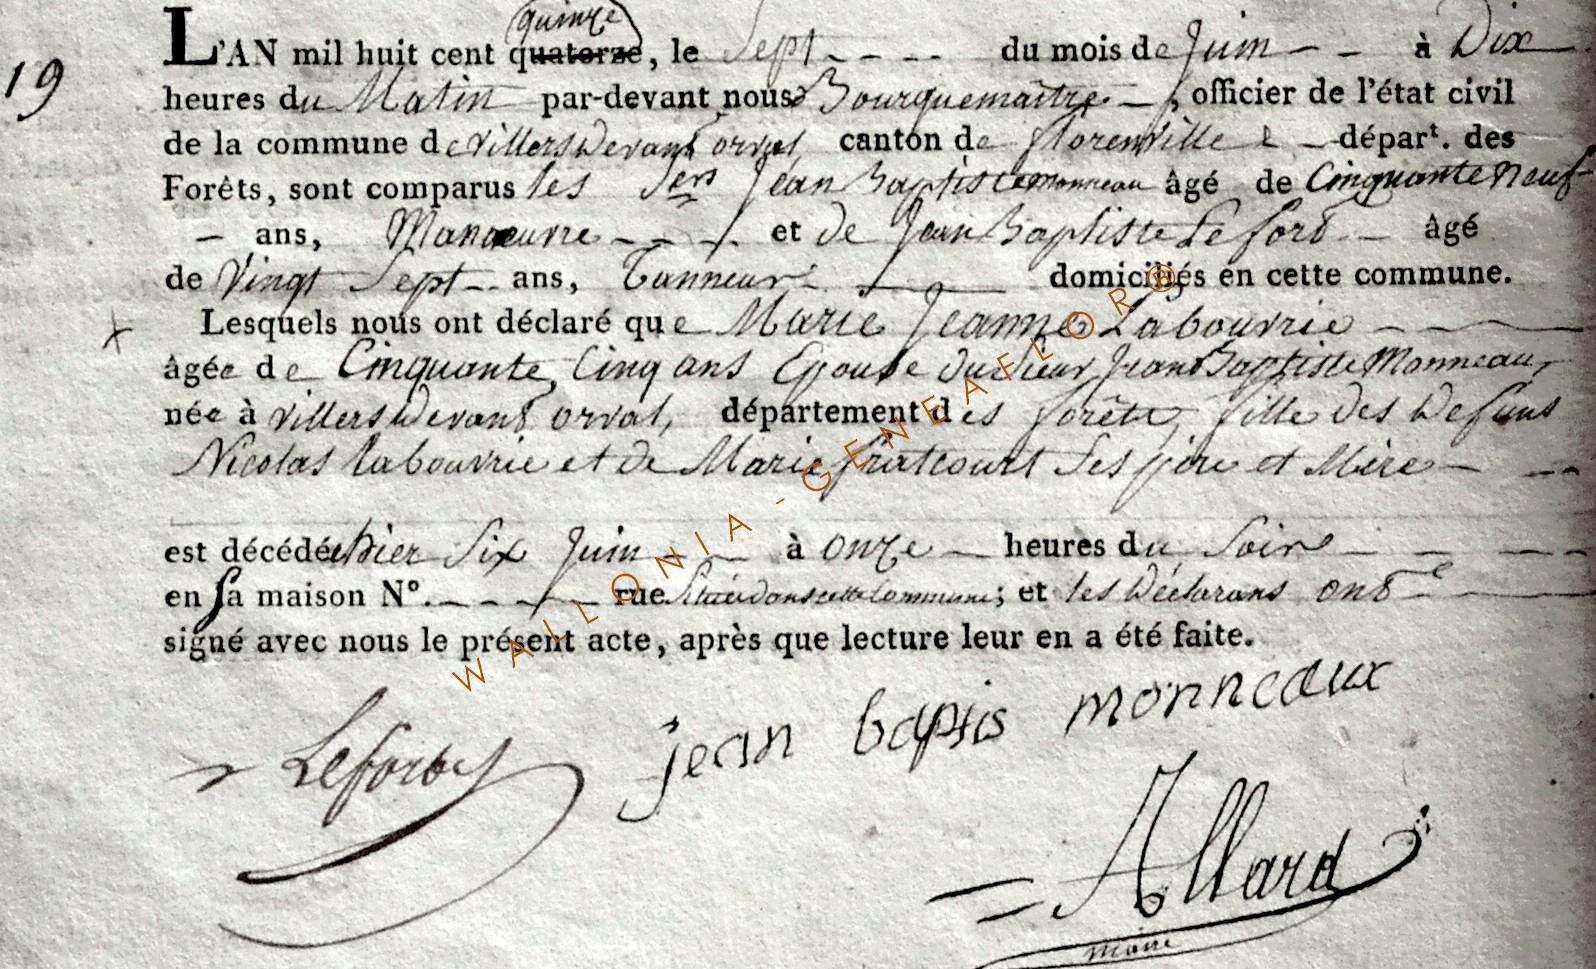 quinze
L'AN mil huit cent quatorze, le Sept du mois de Juin à Dix
19
heures du Matin par-devant nous Bourguemaître, officier de l'état civil
de la commune de villers Devant orval, canton de florenville départ. des
Forêts, sont comparus les Srs Jean Baptiste monneau âgé de Cinquante Neuf
ans, Manoeuvre et de Jean Baptiste Lefort âgé
de Vingt Sept ans, Tanneur domiciliés en cette commune.
Lesquels nous ont déclaré que Marie Jeanne Labouvrie
âgée de Cinquante Cinq ans Epouse du Sieur Jean Baptiste Monneau,
née à villers Devant orval, département des forêts, fille des Defuns
Nicolas Labouvrie et de Marie fratcourt Ses père et Mère
est décédée hier Six Juin à onze heures du Soir
en Sa maison N°. rue Située dans cette Commune; et les Déclarans ont
signé avec nous le présent acte, après que lecture leur en a été faite.
jean baptis monneaux
Lefort
Allard
maire
WALLONIA-GENEAFLOR®